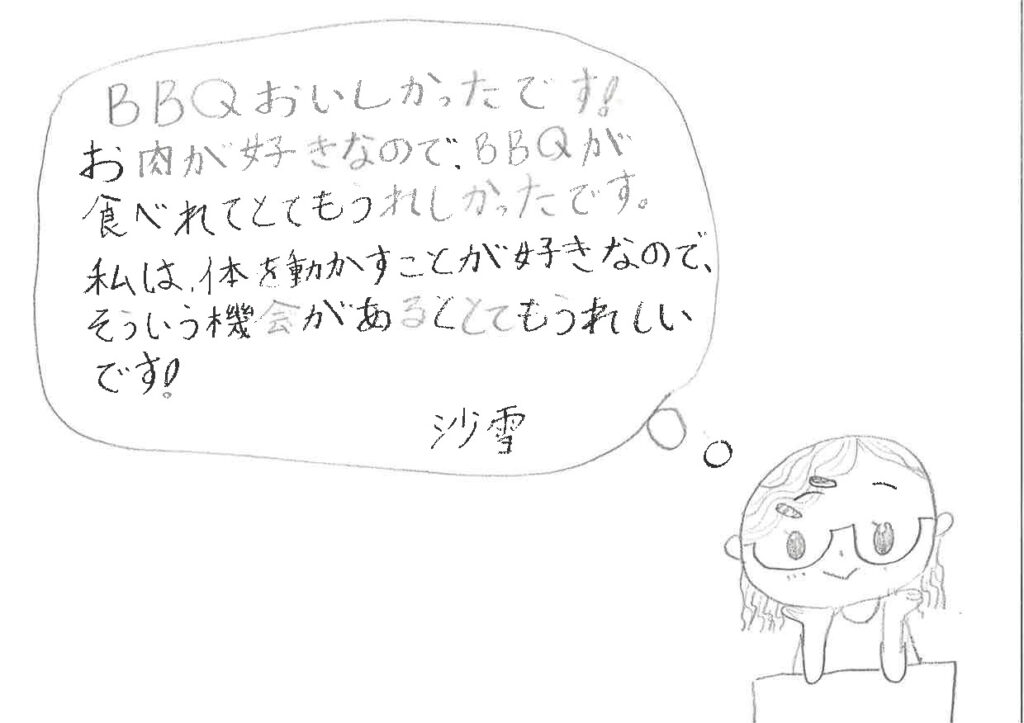 BBQおいしかったです!
お肉が好きなので、BBQが
食べれてとてもうれしかったです。
私は、体を動かすことが好きなので、
そういう機会があるととてもうれしい
です!
沙雪